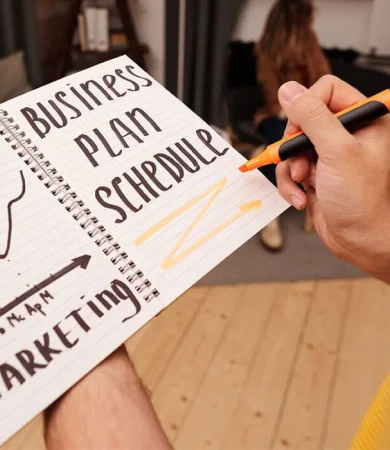 BUSINESS
PLAN
SCHEDULE
Mc ApM
MARKETING